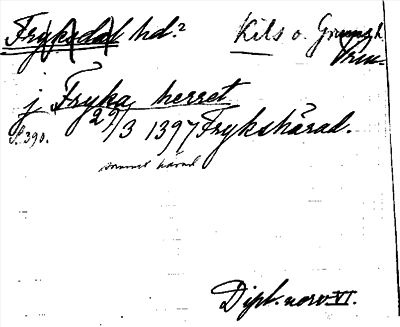 Fryksdal hd? Kils o. Grums h.
Vrml.
j Fryka herret
S. 390. 29/3 1397 Frykshärad.
samml härad
Dipl. norv. VI.